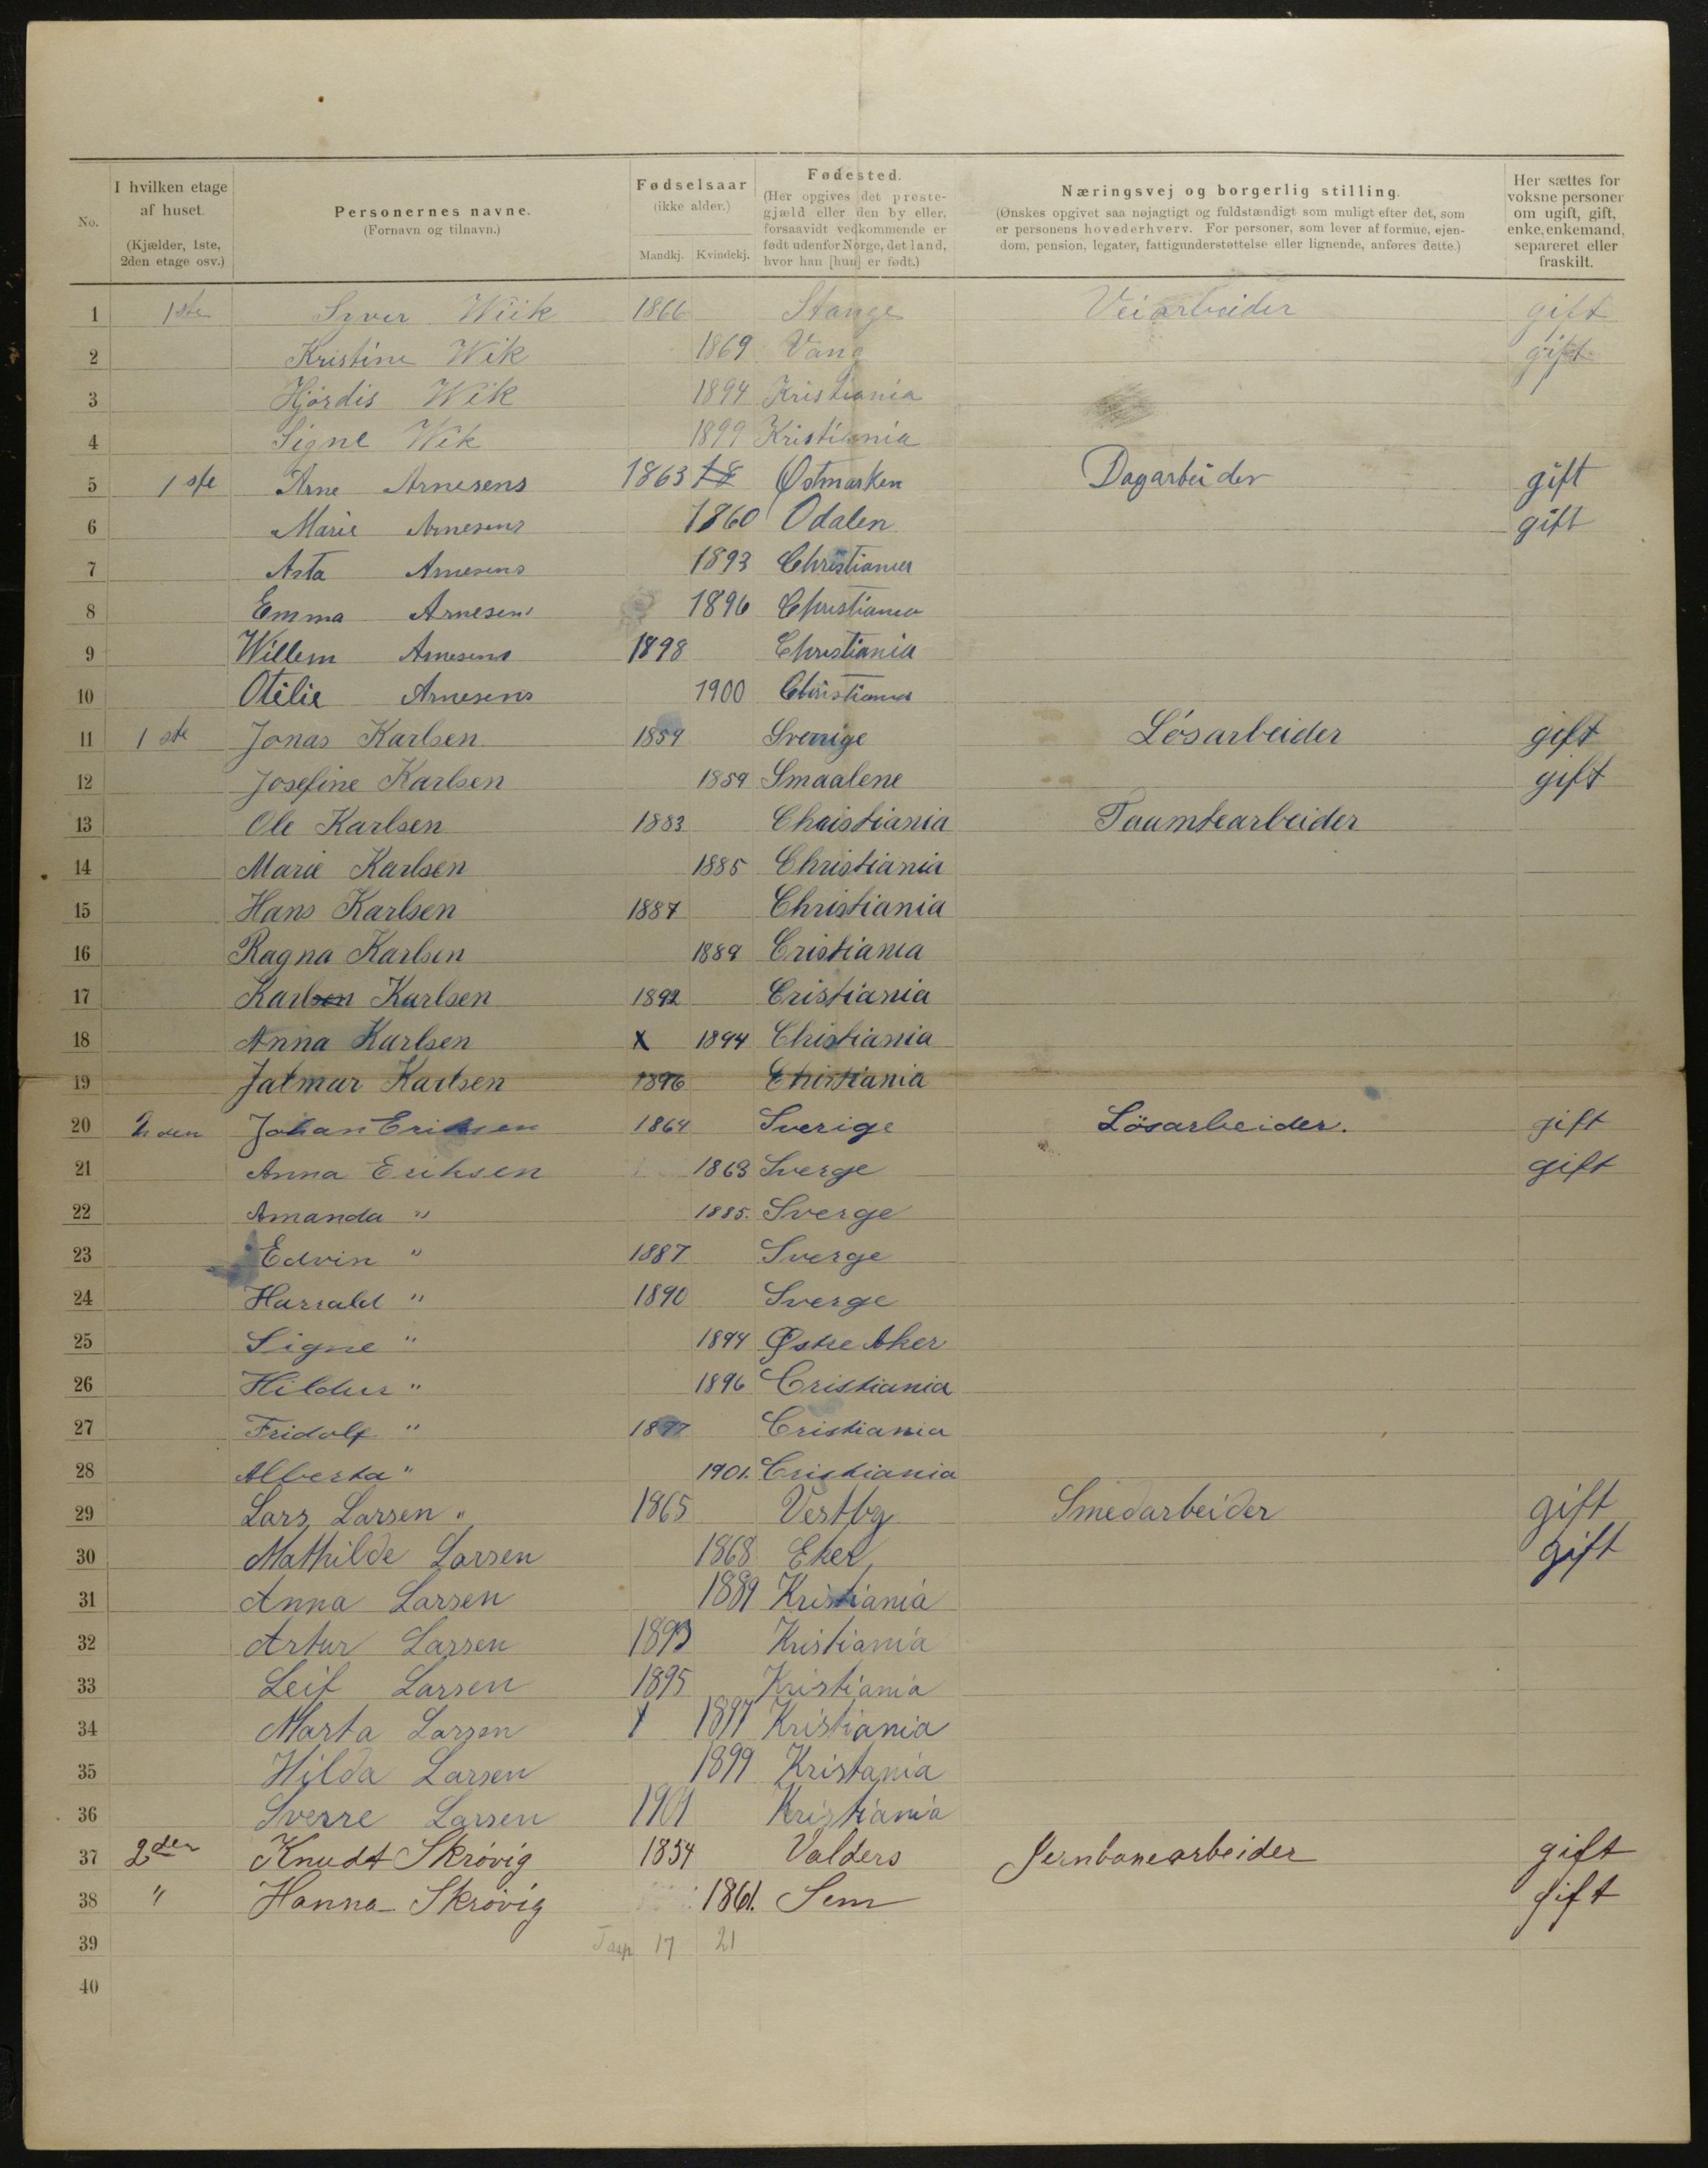 No.
I hvilken etage af huset. (Kjælder, 1ste, 2den etage osv.)
Personernes navne. (Fornavn og tilnavn.)
Fødselsaar (ikke alder.) Mandkj. Kvindekj.
Fødested. (Her opgives det præste-gjæld eller den by eller, forsaavidt vedkommende er født udenfor Norge, det land, hvor han [hun] er født.)
Næringsvej og borgerlig stilling. (Ønskes opgivet saa nøjagtigt og fuldstændigt som muligt efter det, som er personens hovederhverv. For personer, som lever af formue, ejendom, pension, legater, fattigunderstøttelse eller lignende, anføres dette.)
Her sættes for voksne personer om ugift, gift, enke, enkemand, separeret eller fraskilt.
1 1ste Syver Wiik 1866 Stange Veiarbeider gift
2 Kristine Wik 1869 Vang gift
3 Hjørdis Wik 1894 Kristiania
4 Signe Wik 1899 Kristiania
5 1 ste Arne Arnesens 1863 Østmarken Dagarbeider gift
6 Marie Arnesens 1860 Odalen gift
7 Asta Arnesens 1893 Christiania
8 Emma Arnesens 1896 Christiania
9 Willem Arnesens 1898 Christiania
10 Otilie Arnesens 1900 Christiania
11 1 ste Jonas Karlsen 1859 Sverige Lósarbeider gift
12 Josefine Karlsen 1859 Smaalene gift
13 Ole Karlsen 1883 Christiania Taumtearbeider
14 Marie Karlsen 1885 Christiania
15 Hans Karlsen 1887 Christiania
16 Ragna Karlsen 1889 Cristiania
17 Karlsen Karlsen 1892 Cristiania
18 Anna Karlsen x 1894 Christiania
19 Jalmar Karlsen 1896 Christiania
20 2den Johan Eriksen 1864 Sverige Lösarbeider. gift
21 Anna Eriksen 1863 Sverge gift
22 Amanda " 1885. Sverge
23 Edvin " 1887 Sverge
24 Harrald " 1890 Sverge
25 Signe " 1894 Østre Aker
26 Hildur " 1896 Cristiania
27 Fridolf " 1897 Cristiania
28 Alberta " 1901. Cristiania
29 Lars Larsen " 1865 Vestby Smedarbeider gift
30 Mathilde Larsen 1868 Eker gift
31 Anna Larsen 1889 Kristiania
32 Artur Larsen 1893 Kristiania
33 Leif Larsen 1895 Kristiania
34 Marta Larsen 1897 Kristiania
35 Hilda Larsen 1899 Kristania
36 Sverre Larsen 1901 Kristiania
37 2den Knudt Skrövig 1854 Valders Jernbanearbeider gift
38 " Hanna Skrövig 1861. Sem gift
39 17 21
40